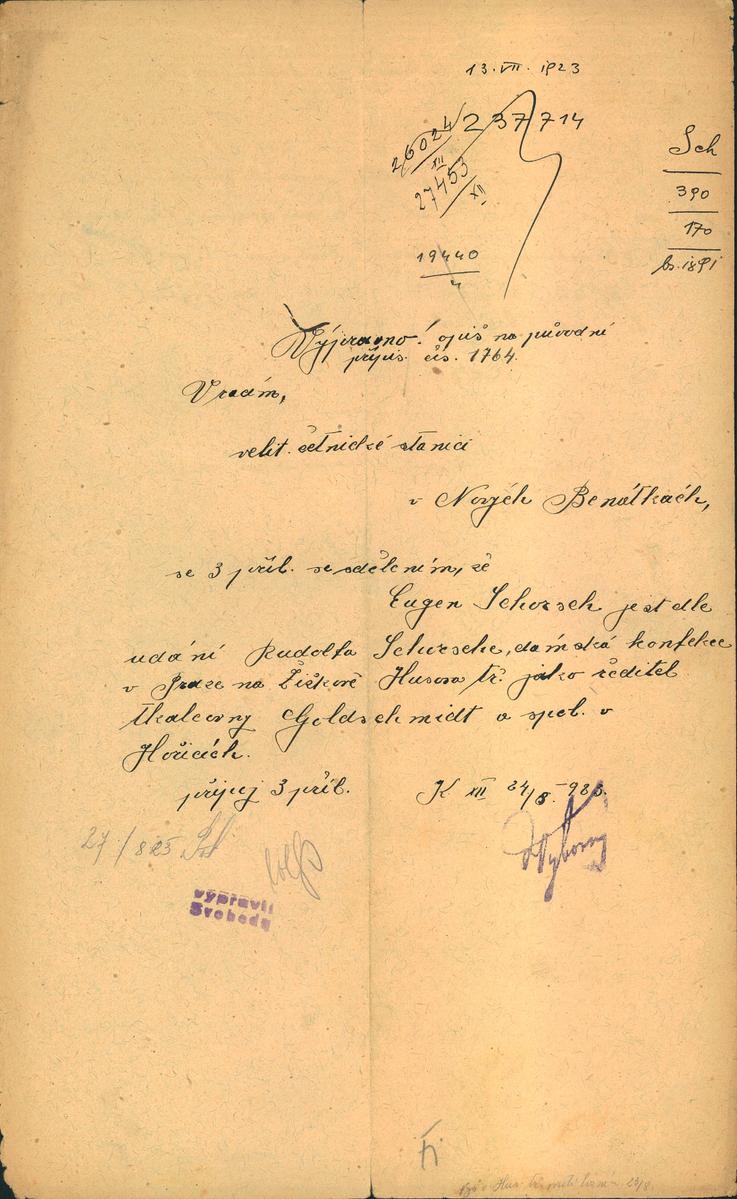 13. VII. 1923
26024/XII 237714
27453/XII
19440
Sch
390
170
1891
Výpravno! opis na původní
přípis čís. 1764.
Vracím,
velit. četnické stanici
v Nových Benátkách,
se 3 příl. se sdělením, že
Eugen Schorsch jest dle
udání Rudolfa Schorsche, dámská konfekce
v Praze na Žižkově Husova tř. jako ředitel
tkalcovny Goldschmidt a spol. v
Hořicích.
připoj 3 příl.
K XIII 24/8
27/8 25
Výborný
vypravil
Svoboda